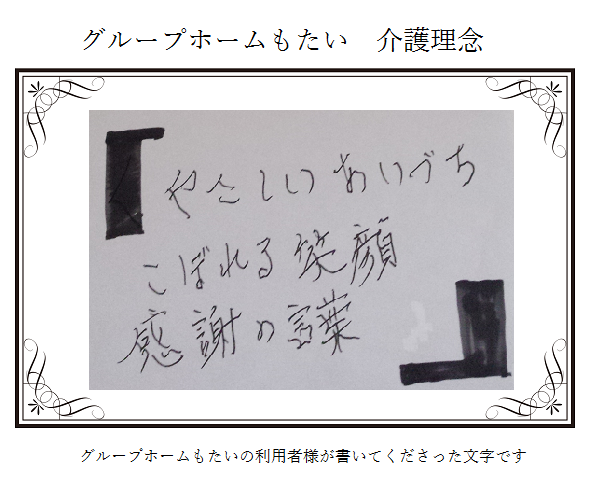 グループホームもたい　介護理念
やさしいあいづち
こぼれる笑顔
感謝の言葉
グループホームもたいの利用者様が書いてくださった文字です